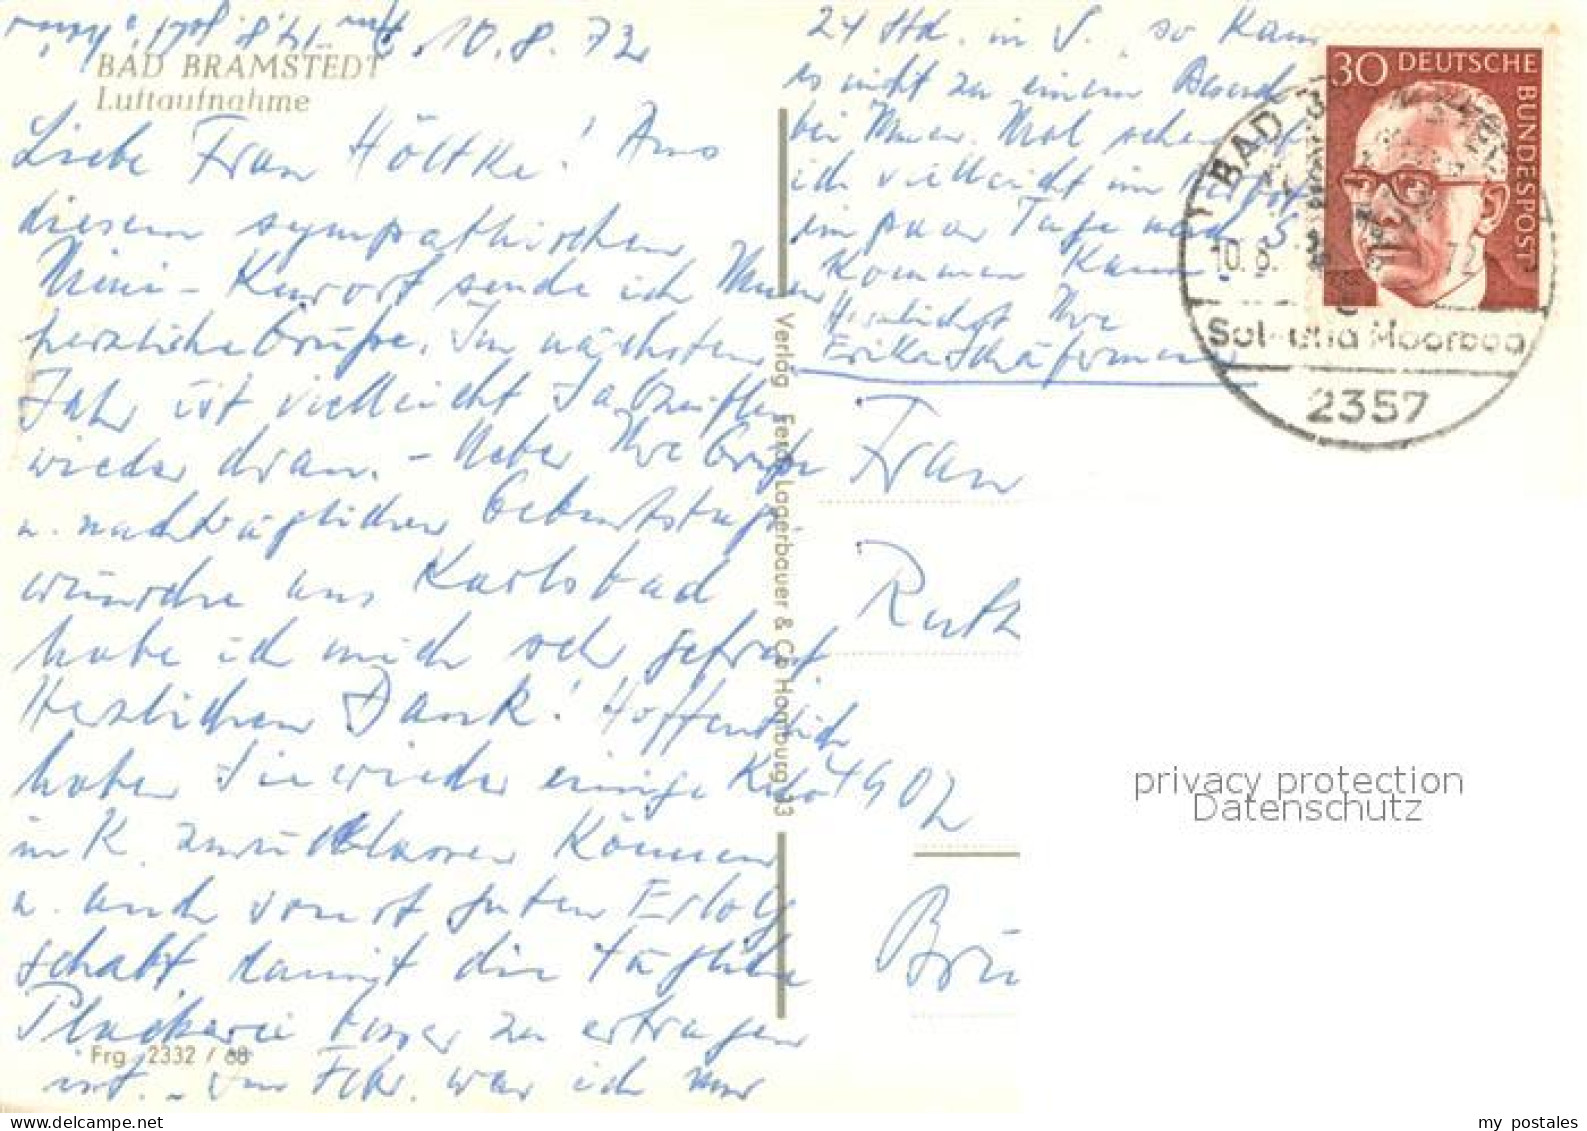 10.8.72
BAD BRAMSTEDT
Luftaufnahme
Liebe Frau Höltke! Aus
diesem sympathischen
Mini-Kurort sende ich Ihnen
herzliche Grüße. Im nächsten
Jahr ist vielleicht
wieder dran. - Ueber Ihre Grüße
u. nachträglichen Geburtstags-
wünsche aus Karlsbad
habe ich mich sehr gefreut
Herzlichen Dank! Hoffentlich
haben Sie wieder einige Kilo
in K. zurücklassen können
u. auch sonst guten Erfolg
gehabt, damit die tägliche
Plackerei besser zu ertragen
ist. - Im Febr. war ich nur
Frg. 2332 / 68
Verlag Ferd. Lagerbauer & Co Hamburg 33
24 Std. in S., so kam
es nicht zu einem Besuch
bei Ihnen. Mal sehen, ob
ich vielleicht im Herbst
ein paar Tage nach S.
kommen kann
Herzlichst Ihre
Erika Schäfermann
30 DEUTSCHE BUNDESPOST
BAD
10.8.
Sol- und Moorbad
2357
Frau
Ruth
4902
privacy protection
Datenschutz
my postales